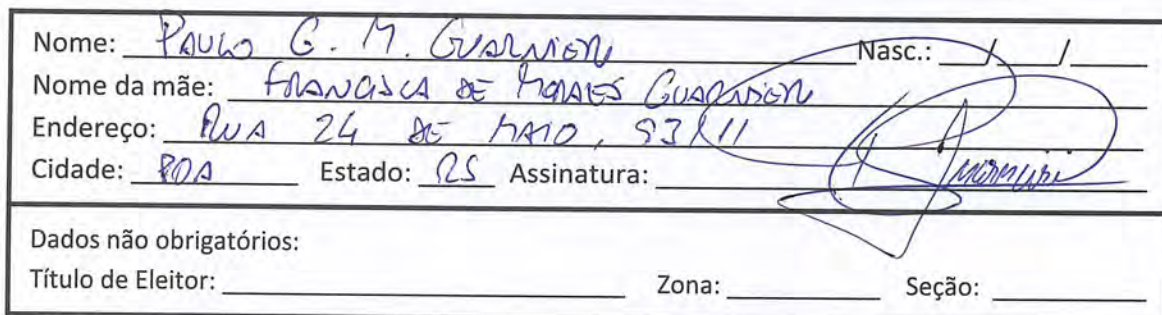 Nome: PAULO G. M. GUARNIERI Nasc.: __/__/__
Nome da mãe: FRANCISCA DE MORAES GUARNIERI
Endereço: RUA 24 DE MAIO, 93/11
Cidade: POA Estado: RS Assinatura:
Dados não obrigatórios:
Título de Eleitor: Zona: Seção: